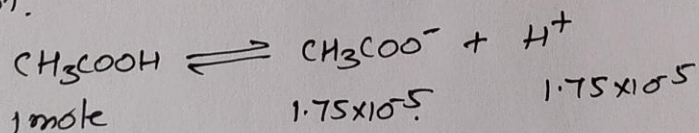 ).
CH₃COOH ⇌ CH₃COO⁻ + H⁺
1 mole 1.75×10⁻⁵. 1.75×10⁻⁵